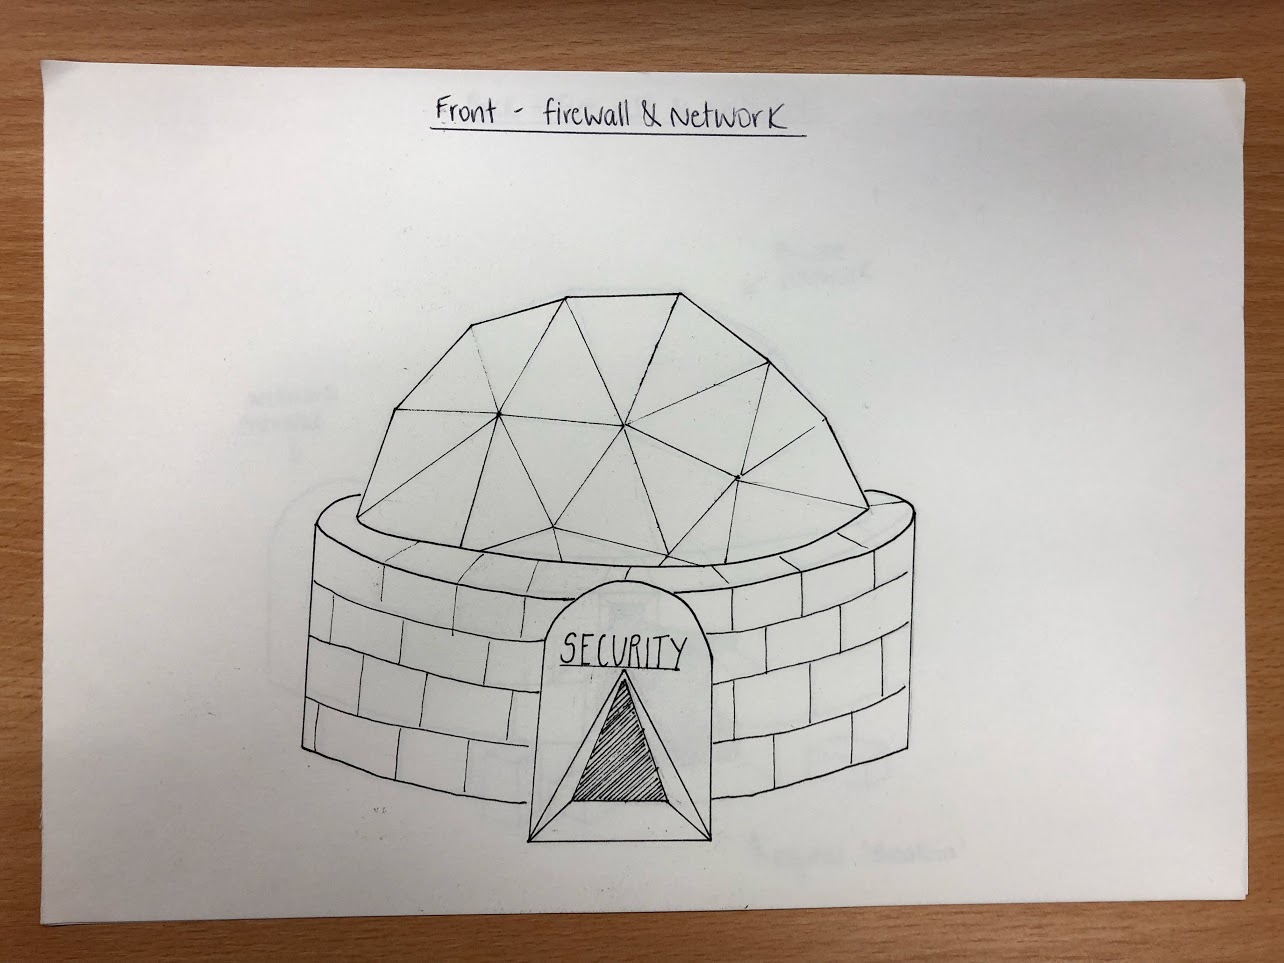 Front - firewall & Network
SECURITY